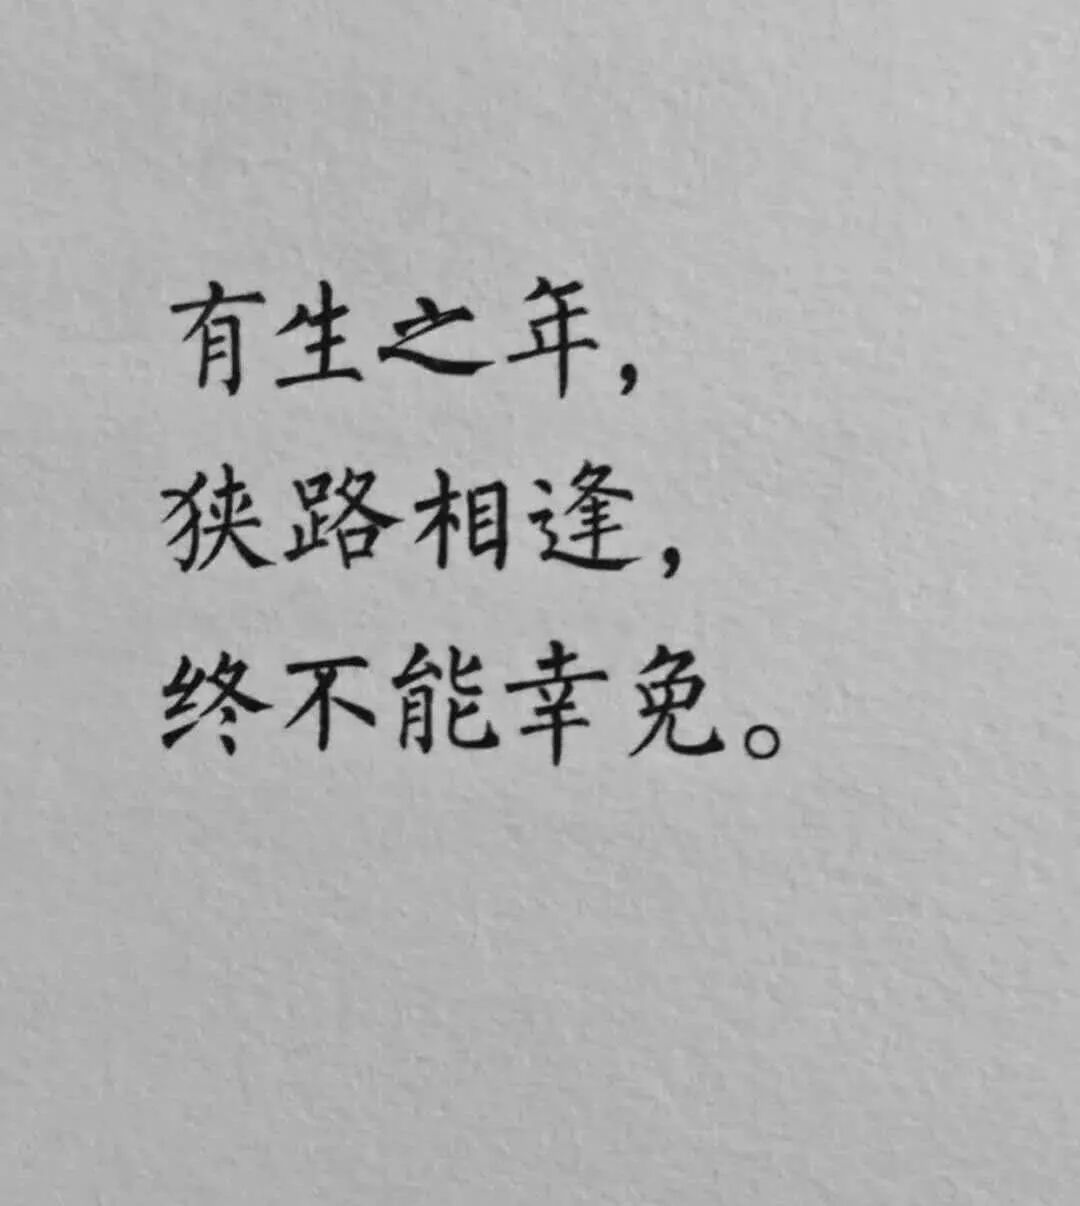 有生之年，
狭路相逢，
终不能幸免。